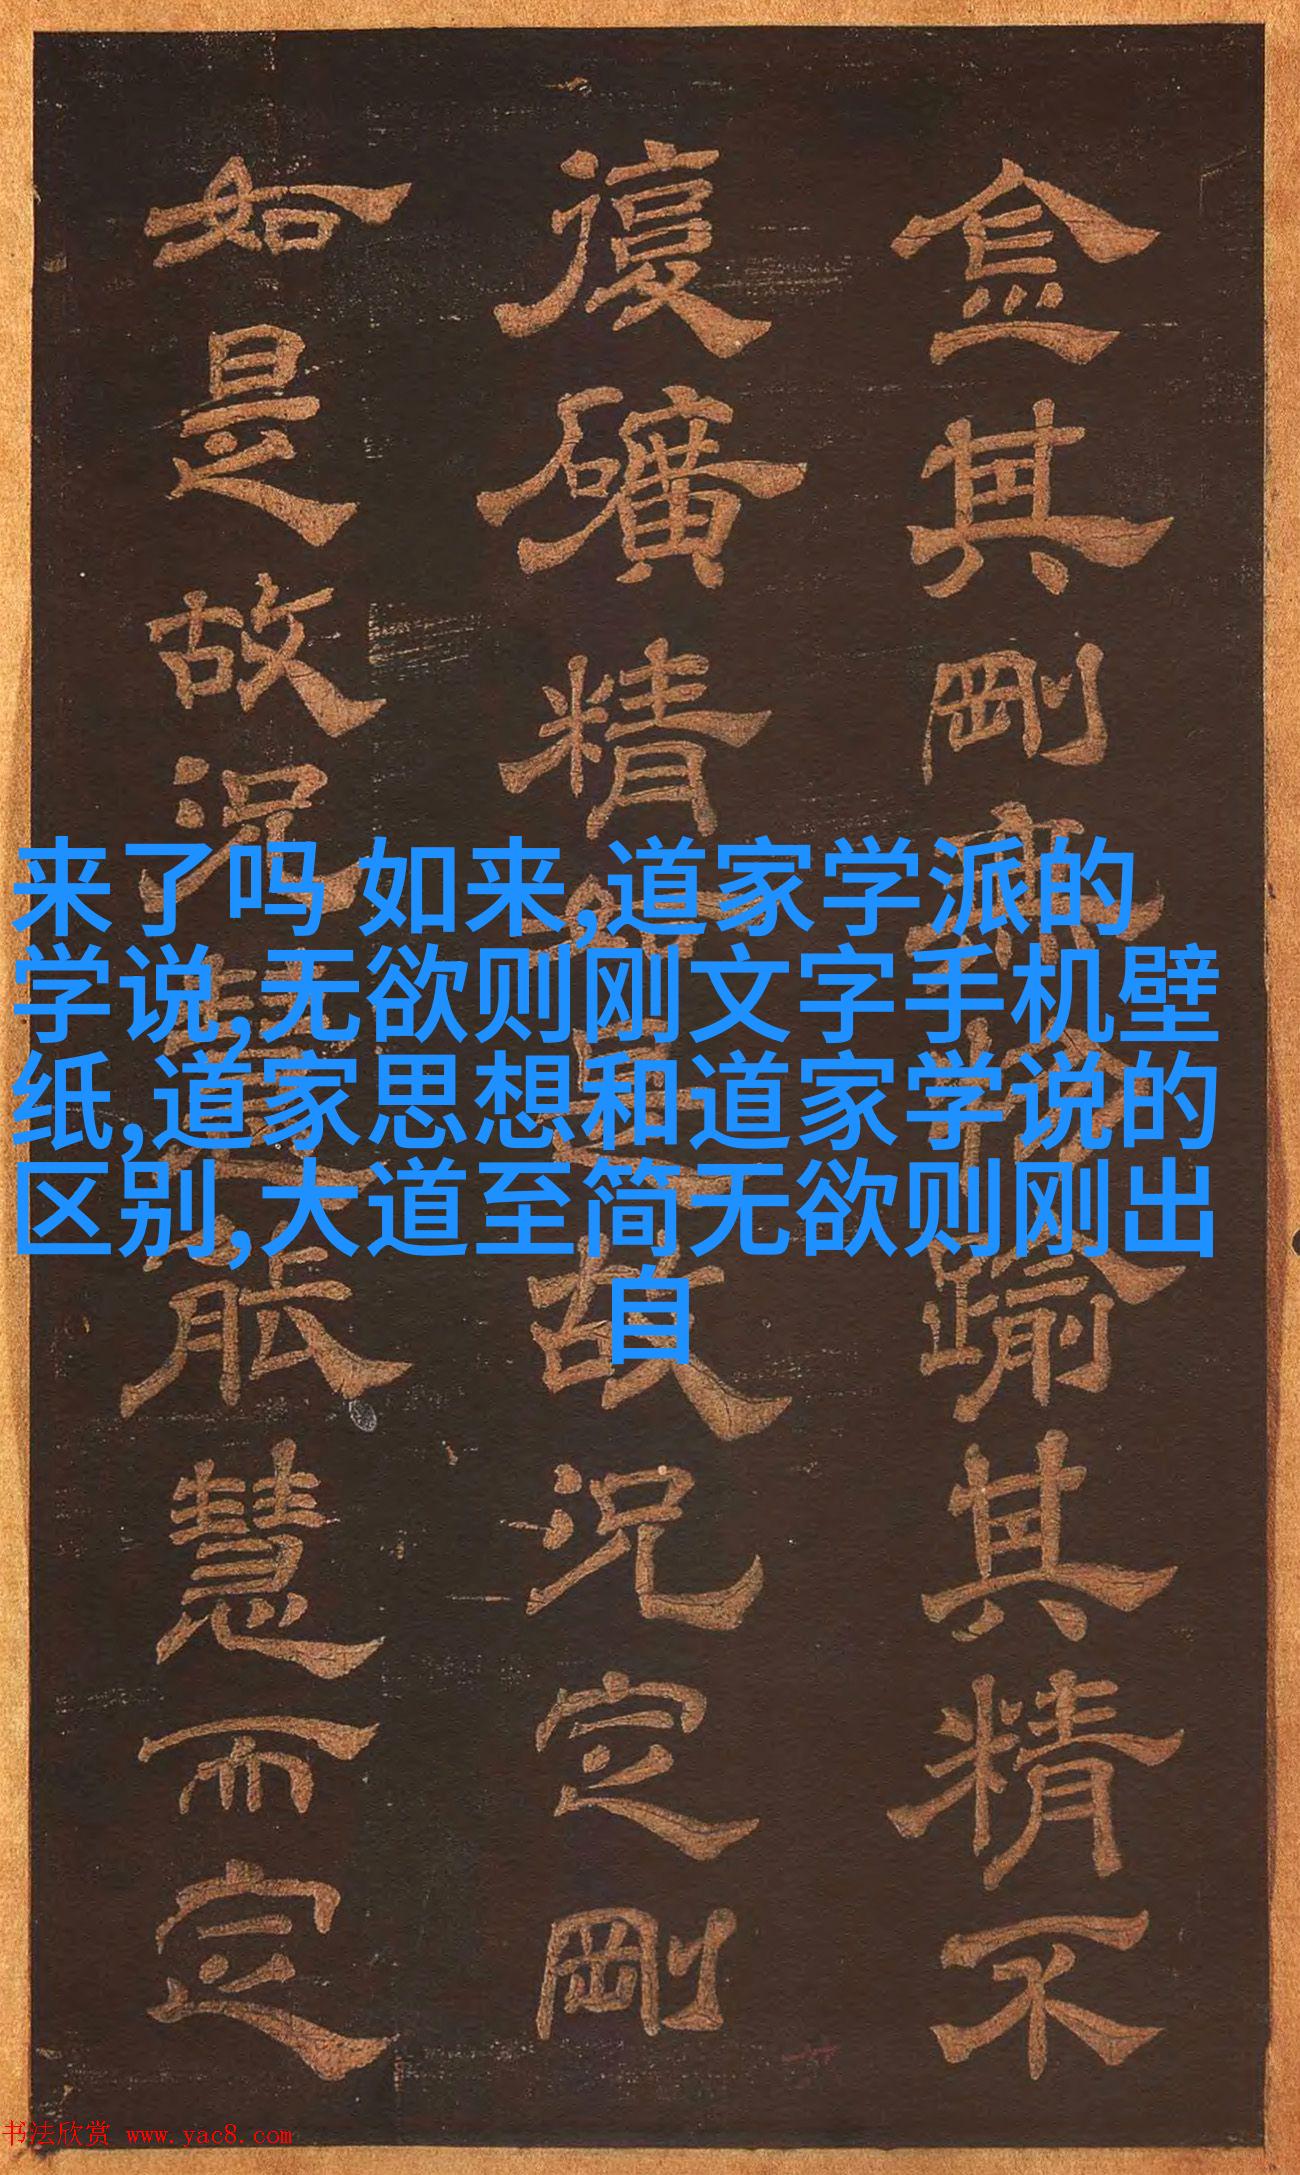 金其剛踰其精不
復礦精故況定剛
如是故況慧而定
来了吗 如来,道家学派的
学说,无欲则刚文字手机壁
纸,道家思想和道家学说的
区别,大道至简无欲则刚出
自
书法欣赏 www.yac8.com